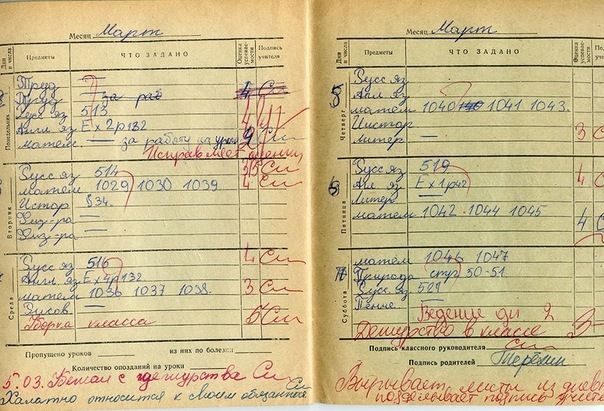 Месяц Март
Дни и числа
Предметы
ЧТО ЗАДАНО
Оценка успеваемости
Подпись учителя
Понедельник
Труд
Труд за раб 4 Си
Русс яз 513 4
Англ яз Е x 2 р 132 4
матем за работу на уроке 2 Си
Исправляет оценки
Вторник
Русс яз 514 5 Си
матем 1029 1030 1039 4 Си
Истор § 34.
Физ-ра
Физ-ра
Среда
Русс яз 516 4 Си
Англ яз Е x 4 р 132
матем 1036 1037 1038 3 Си
Рисов
Уборка класса 5 Си
Пропущено уроков
из них по болезни
Количество опозданий на уроки
5.03. Бежал с дежурства Си
Халатно относится к своим обязанностям Си
Месяц Март
Дни и числа
Предметы
ЧТО ЗАДАНО
Оценка успеваемости
Подпись учителя
Четверг
5
Русс яз
Англ яз
матем 1040 1041 1043
Истор
литер 3 С
Пятница
6
Русс яз 519 4
Анг яз Е x 1 р 42
литер
матем 1042 1044 1045 4
Суббота
матем 1046 1047
Природа стр 50-51
Русс яз 521
Пение
Ведение дн 2
Дежурство в классе 3
Подпись классного руководителя Си
Подпись родителей Терёхин
Вырывает листы из дневника
подделывает подпись учителя